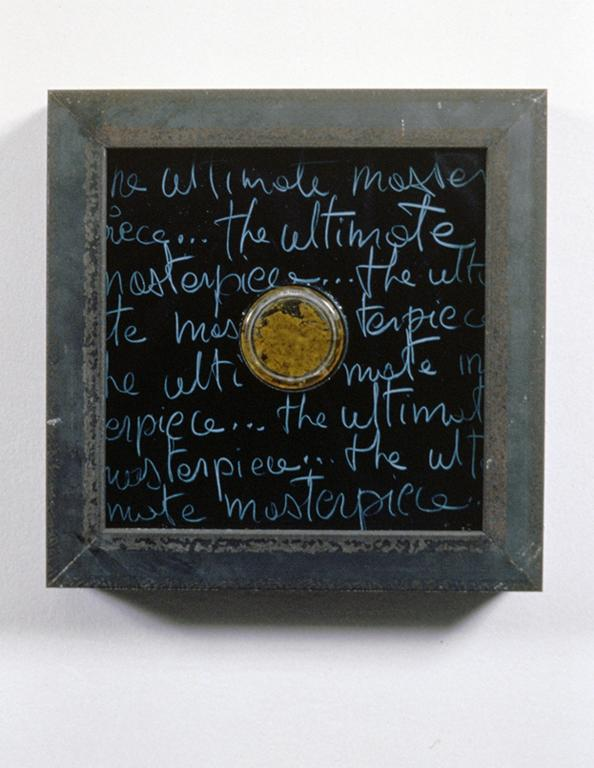 he ultimate master
iece... the ultimate
masterpiece... the ulti
te mas terpiece
he ulti mate m
erpiece... the ultimat
masterpiece... the ult
mate masterpiece..